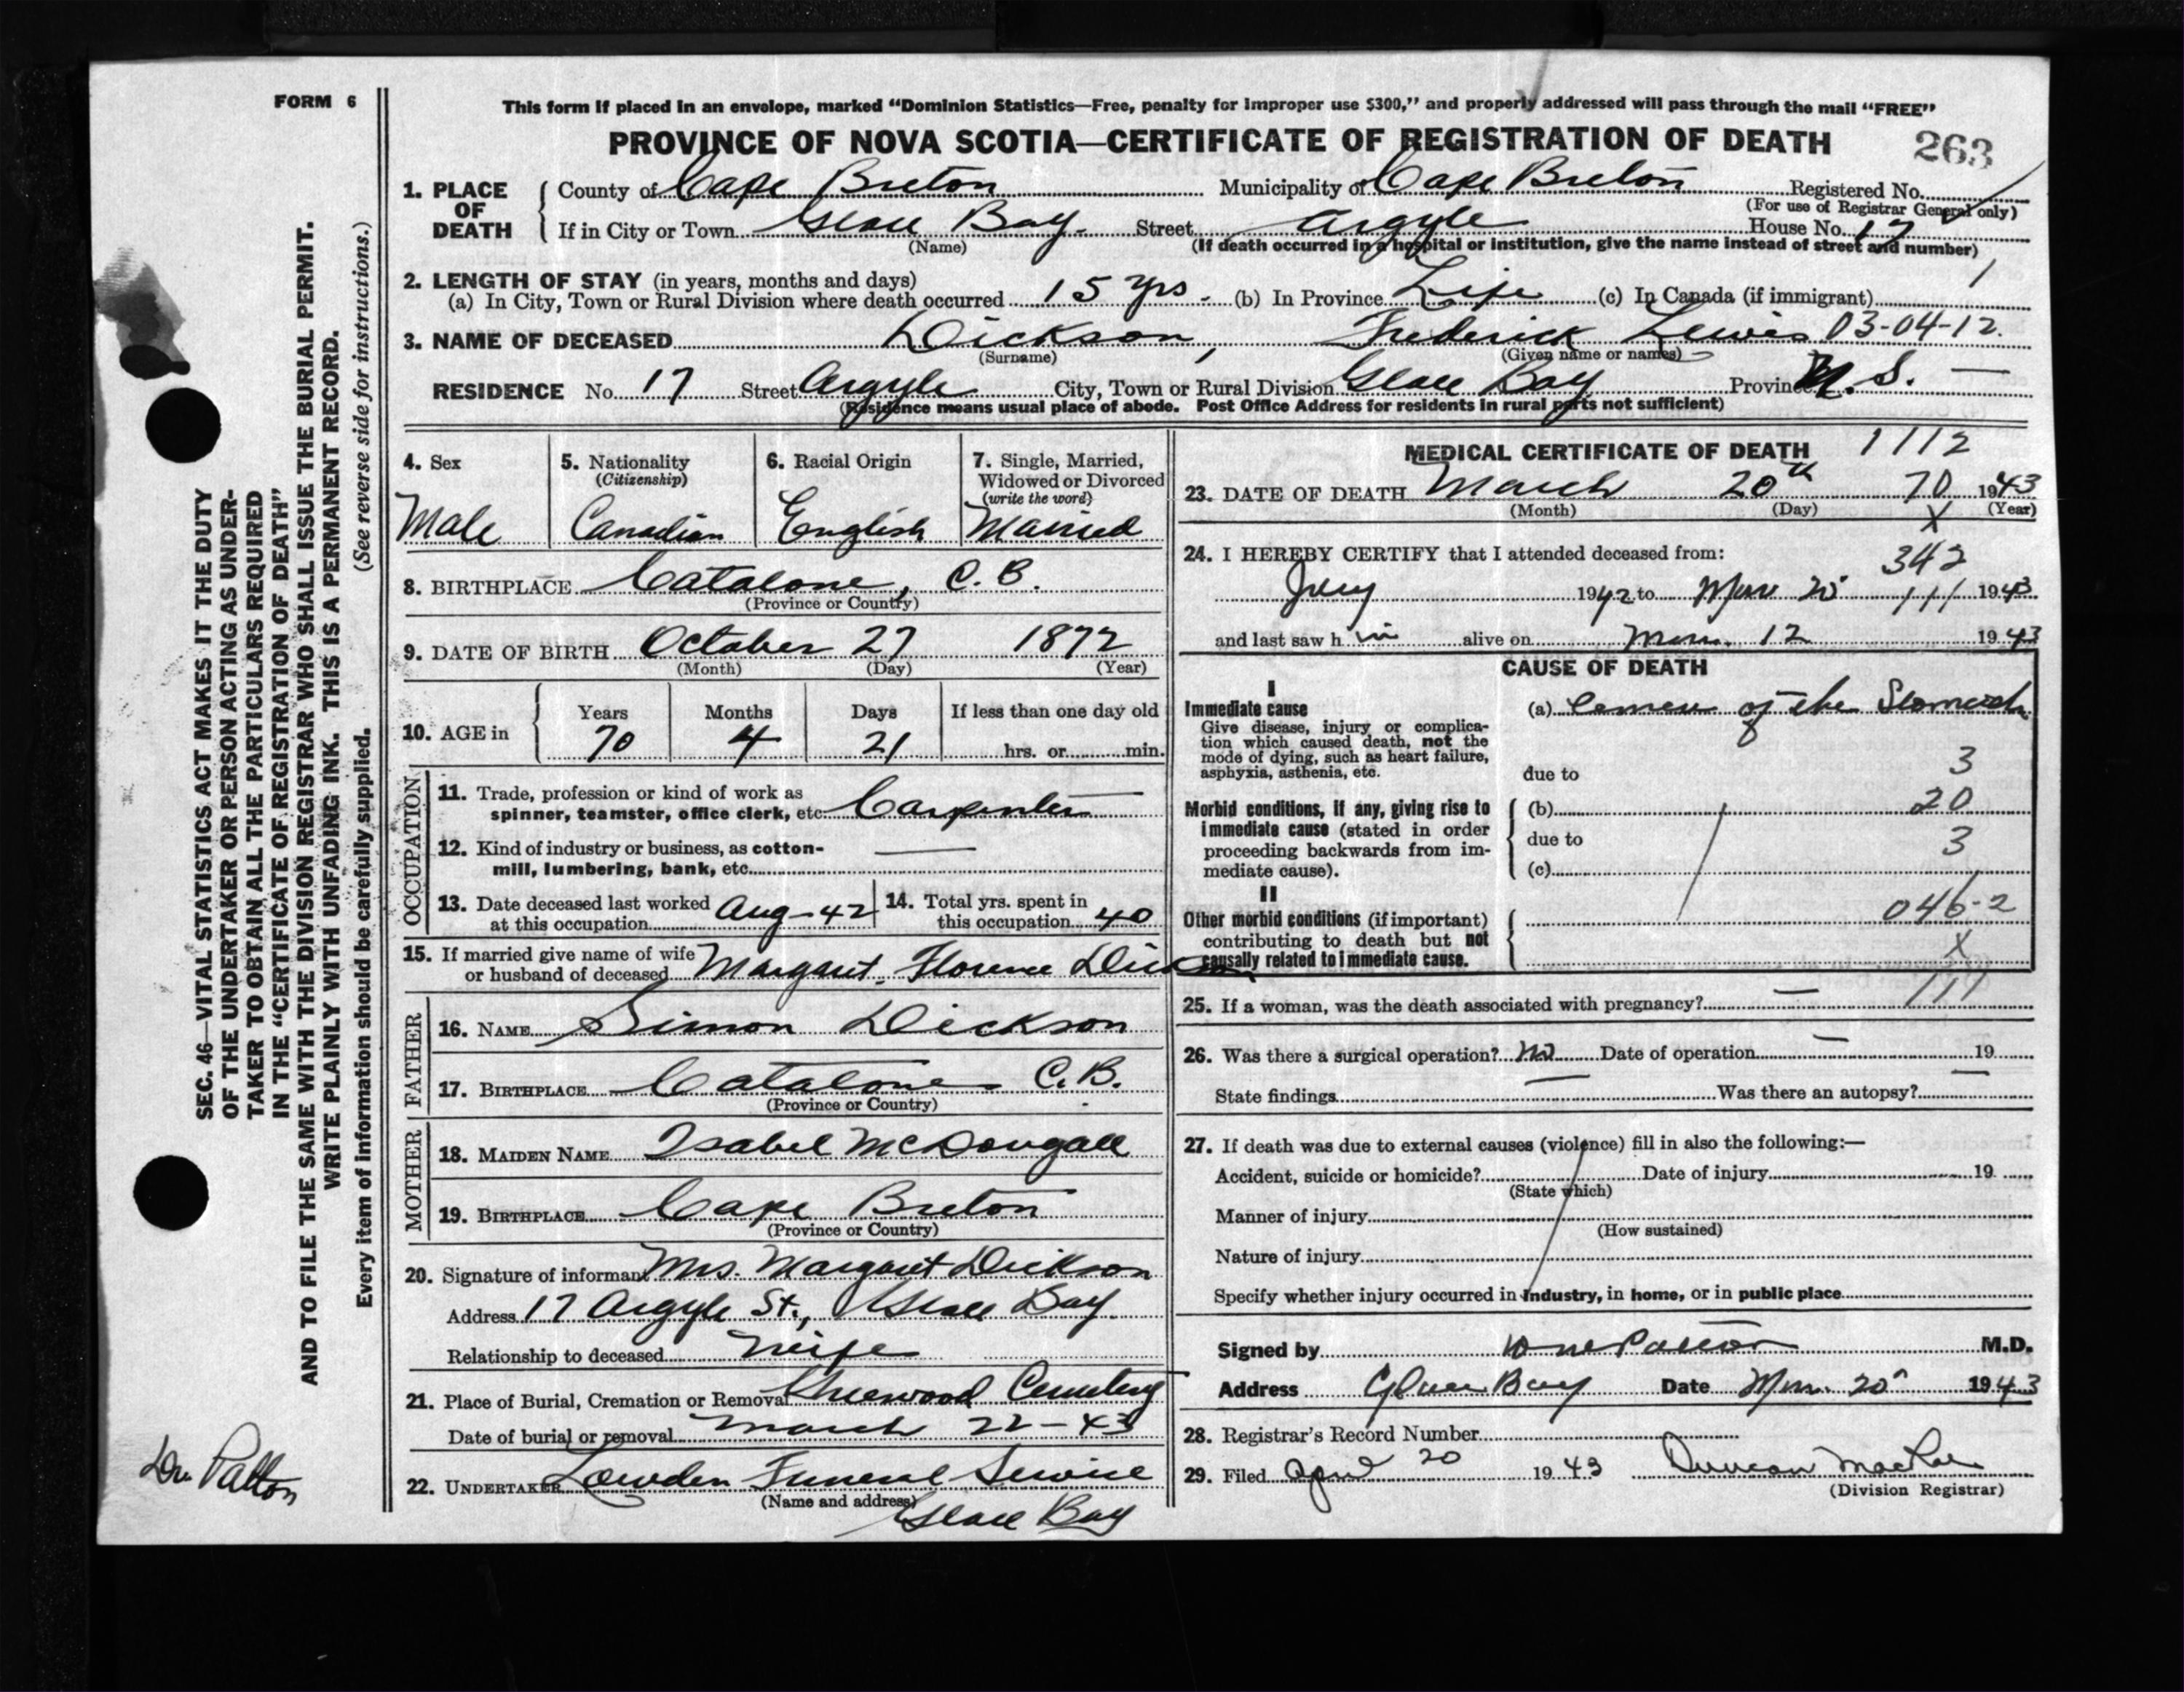 FORM 6
This form if placed in an envelope, marked “Dominion Statistics—Free, penalty for improper use $300,” and properly addressed will pass through the mail “FREE”
PROVINCE OF NOVA SCOTIA—CERTIFICATE OF REGISTRATION OF DEATH
263
1. PLACE OF DEATH
County of Cape Breton Municipality of Cape Breton Registered No.
(For use of Registrar General only)
If in City or Town Glace Bay. Street Argyle House No. 17
(Name) (If death occurred in a hospital or institution, give the name instead of street and number)
2. LENGTH OF STAY (in years, months and days)
(a) In City, Town or Rural Division where death occurred 15 yrs. (b) In Province Life (c) In Canada (if immigrant)
3. NAME OF DECEASED Dickson, Frederick Lewis 03-04-12.
(Surname) (Given name or names)
RESIDENCE No. 17 Street Argyle City, Town or Rural Division Glace Bay Province N.S. —
(Residence means usual place of abode. Post Office Address for residents in rural parts not sufficient)
4. Sex
Male
5. Nationality
(Citizenship)
Canadian
6. Racial Origin
English
7. Single, Married,
Widowed or Divorced
(write the word)
Married
8. BIRTHPLACE Catalone, C.B.
(Province or Country)
9. DATE OF BIRTH October 27 1872
(Month) (Day) (Year)
10. AGE in
Years Months Days If less than one day old
70 4 21 hrs. or min.
OCCUPATION
11. Trade, profession or kind of work as
spinner, teamster, office clerk, etc. Carpenter
12. Kind of industry or business, as cotton-
mill, lumbering, bank, etc. —
13. Date deceased last worked
at this occupation Aug-42
14. Total yrs. spent in
this occupation 40
15. If married give name of wife
or husband of deceased Margaret Florence Dickson
FATHER
16. NAME Simon Dickson
17. BIRTHPLACE Catalone C.B.
(Province or Country)
MOTHER
18. MAIDEN NAME Isabel McDougall
19. BIRTHPLACE Cape Breton
(Province or Country)
20. Signature of informant Mrs. Margaret Dickson
Address 17 Argyle St., Glace Bay
Relationship to deceased Wife
21. Place of Burial, Cremation or Removal Cemetery
Date of burial or removal March 22-43
22. UNDERTAKER Lowden Funeral Service
(Name and address)
Glace Bay
MEDICAL CERTIFICATE OF DEATH 1112
23. DATE OF DEATH March 20th 70 1943
(Month) (Day) (Year)
X
24. I HEREBY CERTIFY that I attended deceased from:
342
July 1942 to Mar 20 111 1943
and last saw h im alive on Mar. 12 1943
CAUSE OF DEATH
I
Immediate cause
Give disease, injury or complica-
tion which caused death, not the
mode of dying, such as heart failure,
asphyxia, asthenia, etc.
(a) Cancer of the Stomach
due to 3
Morbid conditions, if any, giving rise to
immediate cause (stated in order
proceeding backwards from im-
mediate cause).
(b) 20
due to 3
(c)
II
Other morbid conditions (if important)
contributing to death but not
causally related to immediate cause.
046-2
X
25. If a woman, was the death associated with pregnancy? — 111
26. Was there a surgical operation? No Date of operation — 19
State findings — Was there an autopsy? —
27. If death was due to external causes (violence) fill in also the following:—
Accident, suicide or homicide? Date of injury 19
(State which)
Manner of injury
(How sustained)
Nature of injury
Specify whether injury occurred in industry, in home, or in public place
Signed by Patton M.D.
Address Glace Bay Date Mar. 20 1943
28. Registrar's Record Number
29. Filed April 20 1943 Duncan MacRae
(Division Registrar)
SEC. 46—VITAL STATISTICS ACT MAKES IT THE DUTY
OF THE UNDERTAKER OR PERSON ACTING AS UNDER-
TAKER TO OBTAIN ALL THE PARTICULARS REQUIRED
IN THE “CERTIFICATE OF REGISTRATION OF DEATH”
AND TO FILE THE SAME WITH THE DIVISION REGISTRAR WHO SHALL ISSUE THE BURIAL PERMIT.
WRITE PLAINLY WITH UNFADING INK. THIS IS A PERMANENT RECORD.
Every item of information should be carefully supplied. (See reverse side for instructions.)
Dr. Patton